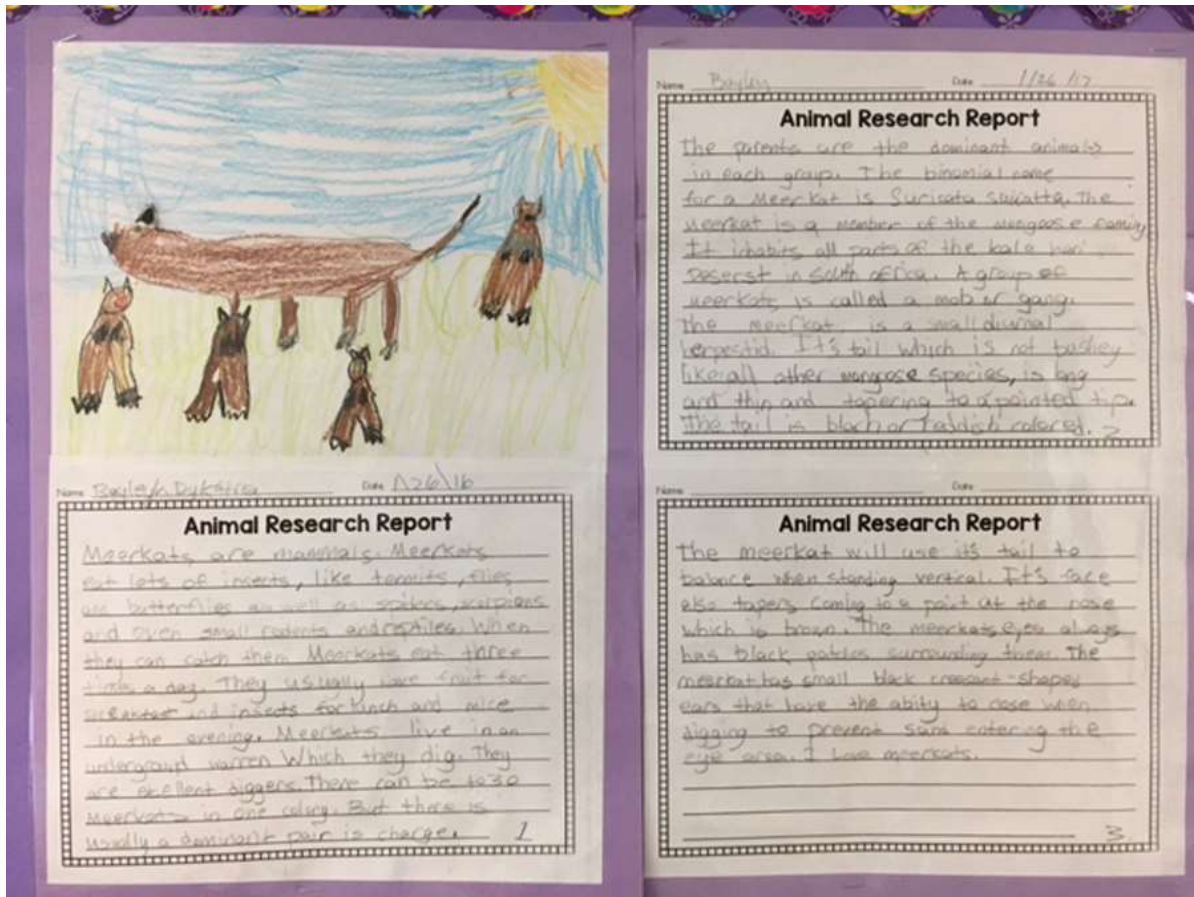 Name Bayley Dykstra Date 1\26\16
Animal Research Report
Meerkats are mammals. Meerkats
eat lots of insects, like termits, flies
and butterflies as well as spiders, scorpions
and even small rodents and reptiles. When
they can catch them Meerkats eat three
times a day. They usually have fruit for
breakfast and insects for lunch and mice
in the evening. Meerkats live in an
undergraund warren Which they dig. They
are exellent diggers. There can be to 30
Meerkats in one colony. But there is
usually a dominant pair is charge. 1
Name Bayley Date 1/26/17
Animal Research Report
The parents are the dominant animals
in each group. The binomial name
for a Meerkat is Suricata suicatta. The
meerkat is a member of the mongoose family
It inhabits all parts of the kala hari
Deserst in South africa. A group of
meerkats is called a mob or gang.
The meerkat is a small diurnal
herpestid. It's tail which is not bashey
like all other mongose species, is long
and thin and tapering to a pointed tip.
The tail is black or reddish colored. 2
Name Date
Animal Research Report
The meerkat will use it's tail to
balance when standing vertical. It's face
also tapers coming to a point at the nose
which is brown. The meerkats eyes always
has black patches surrounding them. The
meerkat has small black cressant-shaped
ears that have the abity to close when
digging to prevent sand entering the
eye area. I Love meerkats.
3